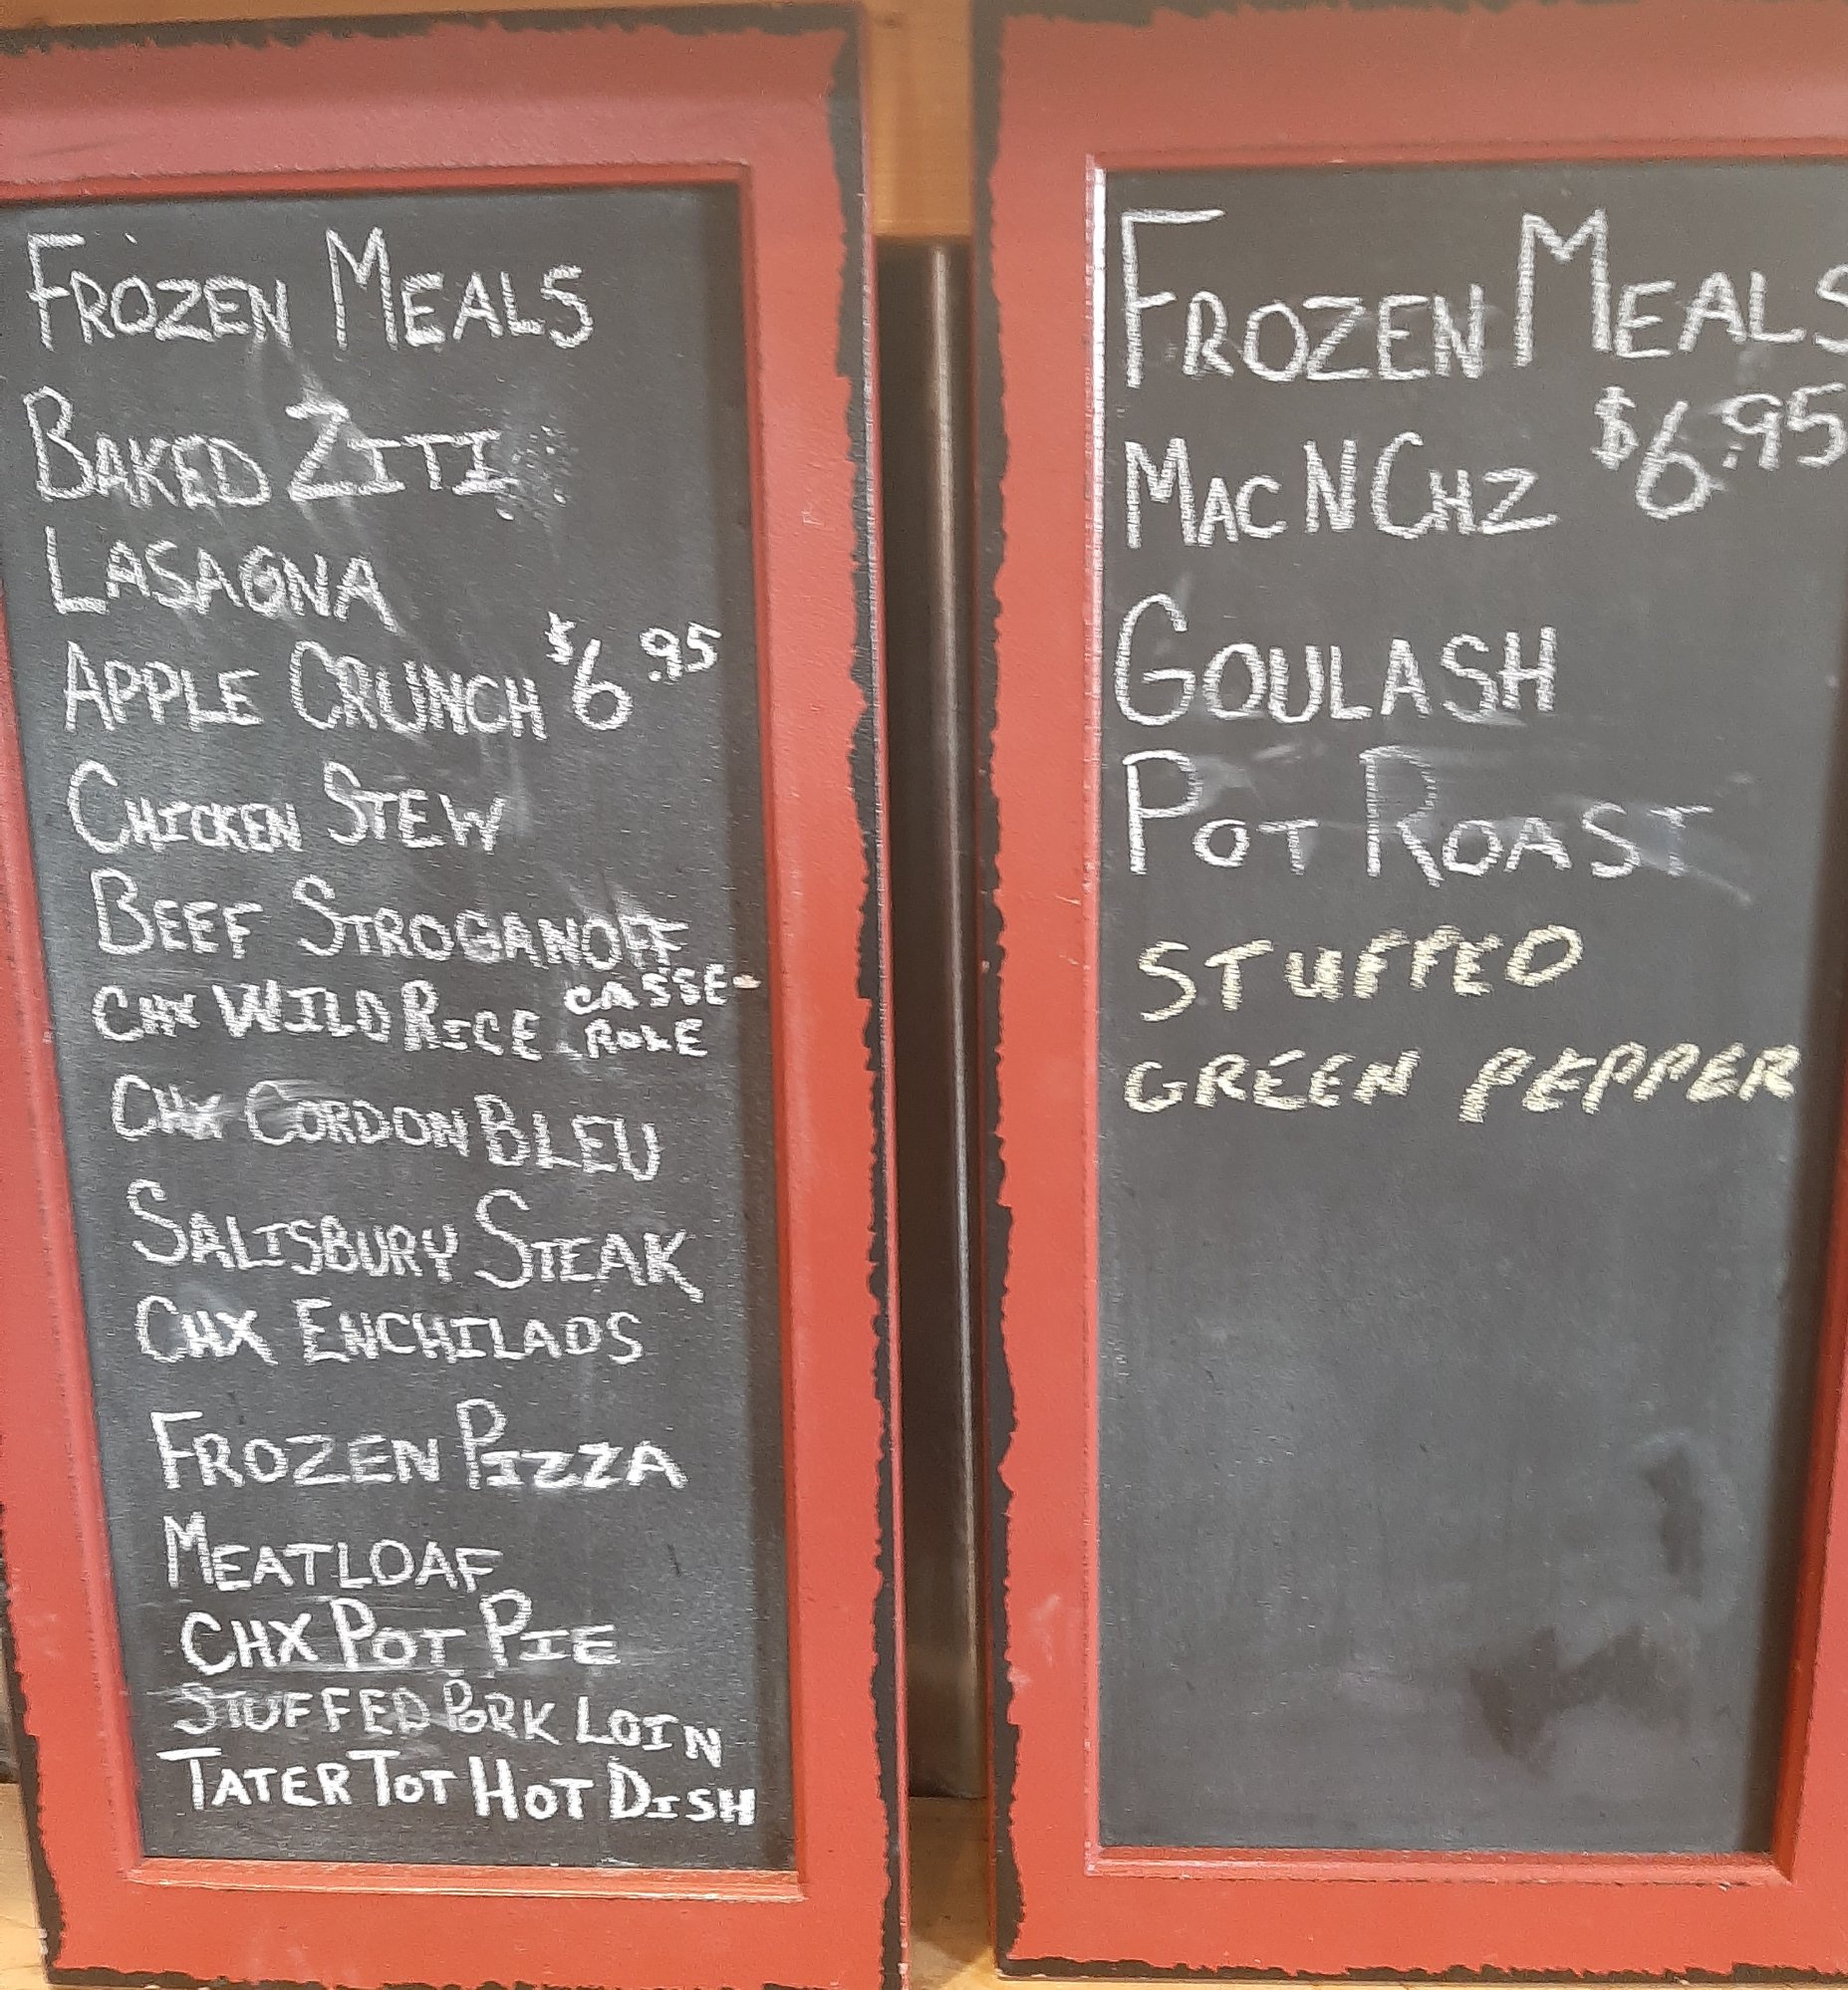 FROZEN MEALS
BAKED ZITI
LASAGNA
APPLE CRUNCH $6.95
CHICKEN STEW
BEEF STROGANOFF
CHX WILD RICE CASSE-
ROLE
CHX CORDON BLEU
SALISBURY STEAK
CHX ENCHILADS
FROZEN PIZZA
MEATLOAF
CHX POT PIE
STUFFED PORK LOIN
TATER TOT HOT DISH
FROZEN MEALS
$6.95
MAC N CHZ
GOULASH
POT ROAST
STUFFED
GREEN PEPPER